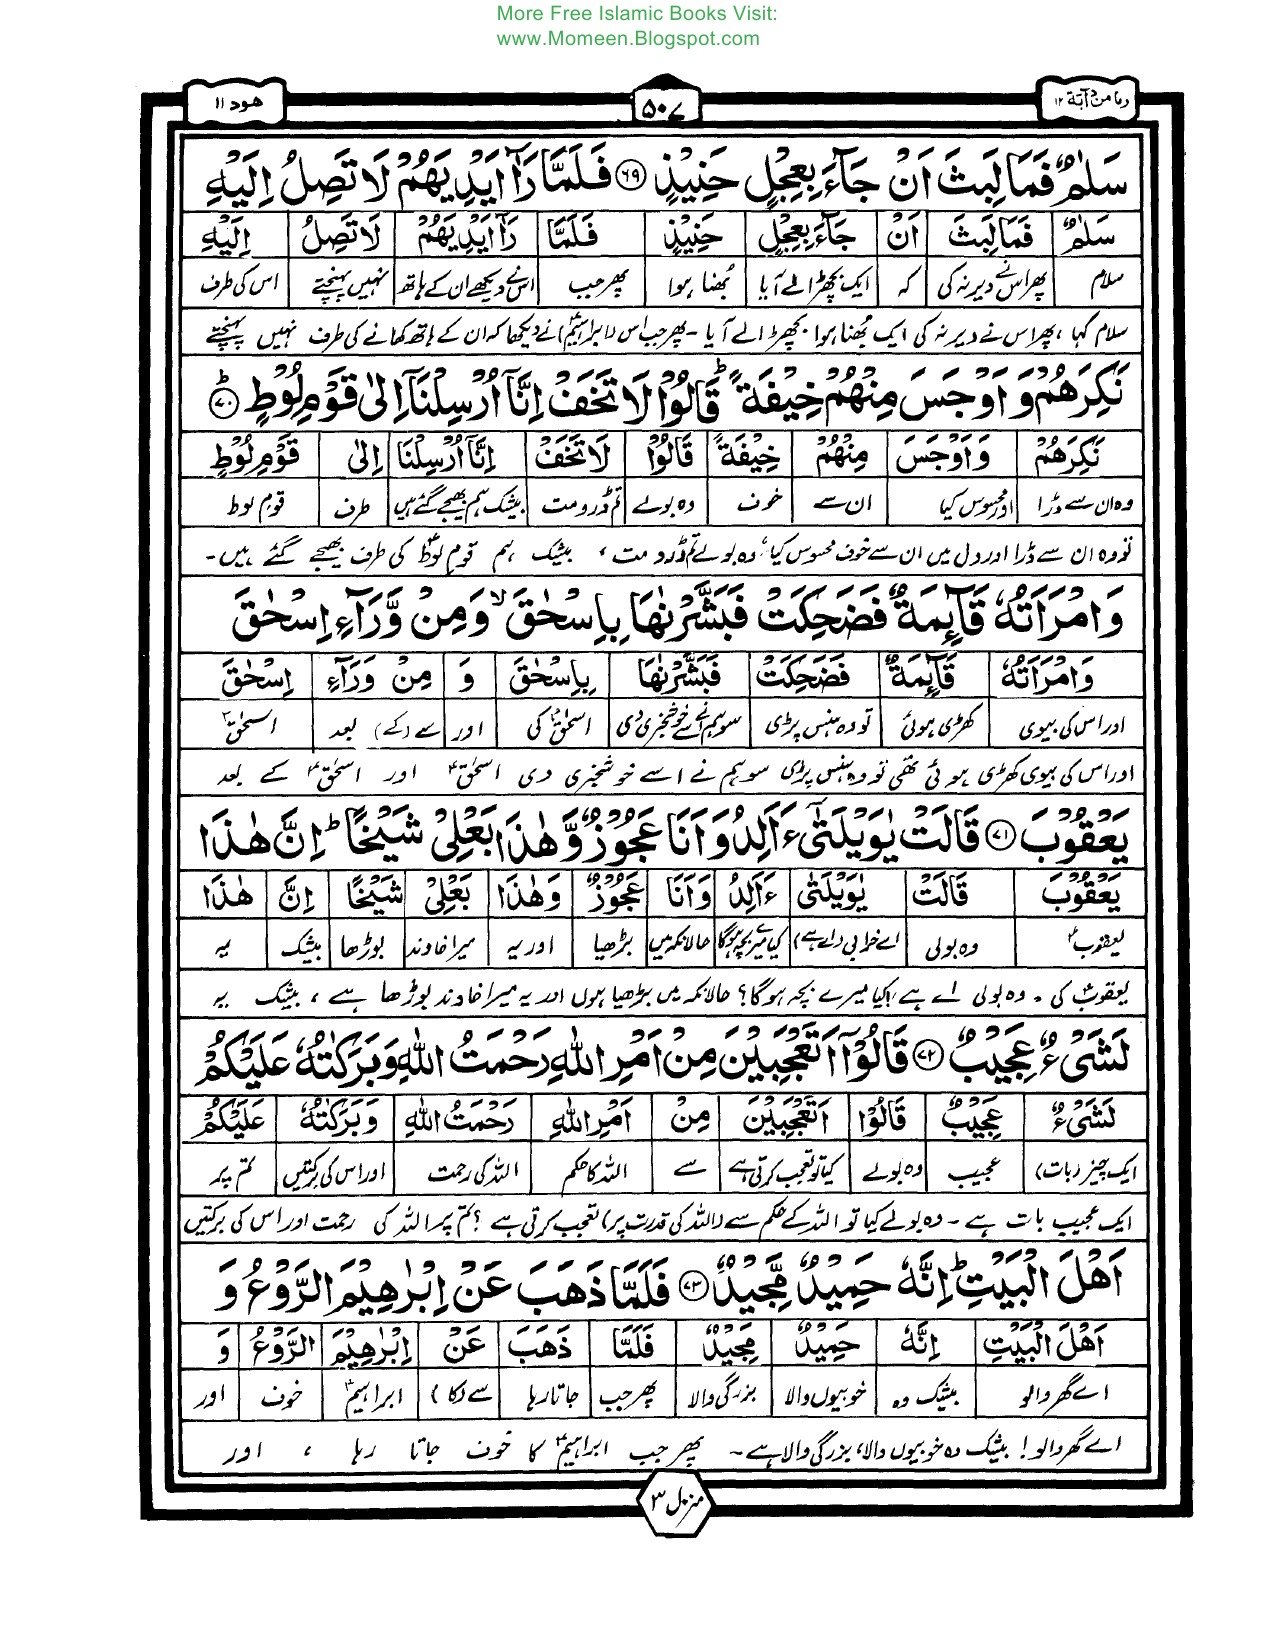 More Free Islamic Books Visit:
www.Momeen.Blogspot.com
وما من دآبة ١٢
۵۰۷
هود ١١
سَلٰمٌ فَمَا لَبِثَ اَنْ جَآءَ بِعِجْلٍ حَنِيْذٍ ۶۹ فَلَمَّا رَآٰ اَيْدِيَهُمْ لَا تَصِلُ اِلَيْهِ
سَلٰمٌ فَمَا لَبِثَ اَنْ جَآءَ بِعِجْلٍ حَنِيْذٍ فَلَمَّا رَآٰ اَيْدِيَهُمْ لَا تَصِلُ اِلَيْهِ
سلام پھر اس نے دیر نہ کی کہ ایک بچھڑا لے آیا بُھنا ہوا پھر جب اس نے دیکھے ان کے ہاتھ نہیں پہنچتے اس کی طرف
سلام کہا، پھر اس نے دیر نہ کی ایک بُھنا ہوا بچھڑا لے آیا۔ پھر جب اس (ابراہیمؑ) نے دیکھا کہ ان کے ہاتھ کھانے کی طرف نہیں پہنچتے
نَكِرَهُمْ وَاَوْجَسَ مِنْهُمْ خِيْفَةً ؕ قَالُوْا لَا تَخَفْ اِنَّآ اُرْسِلْنَآ اِلٰى قَوْمِ لُوْطٍ ؕ ۷۰
نَكِرَهُمْ وَاَوْجَسَ مِنْهُمْ خِيْفَةً قَالُوْا لَا تَخَفْ اِنَّآ اُرْسِلْنَا اِلٰى قَوْمِ لُوْطٍ
وہ ان سے ڈرا اور محسوس کیا ان سے خوف وہ بولے تم ڈرو مت بیشک ہم بھیجے گئے ہیں طرف قوم لوط
تو وہ ان سے ڈرا اور دل میں ان سے خوف محسوس کیا، وہ بولے تم ڈرو مت، بیشک ہم قوم لوطؑ کی طرف بھیجے گئے ہیں۔
وَامْرَاَتُهٗ قَآئِمَةٌ فَضَحِكَتْ فَبَشَّرْنٰهَا بِاِسْحٰقَ ۙ وَمِنْ وَّرَآءِ اِسْحٰقَ
وَامْرَاَتُهٗ قَآئِمَةٌ فَضَحِكَتْ فَبَشَّرْنٰهَا بِاِسْحٰقَ وَ مِنْ وَرَآءِ اِسْحٰقَ
اور اس کی بیوی کھڑی ہوئی تو وہ ہنس پڑی سو ہم نے اسے خوشخبری دی اسحٰقؑ کی اور سے (کے) بعد اسحٰقؑ
اور اس کی بیوی کھڑی ہوئی تھی تو وہ ہنس پڑی سو ہم نے اسے خوشخبری دی اسحٰقؑ اور اسحٰقؑ کے بعد
يَعْقُوْبَ ۷۱ قَالَتْ يٰوَيْلَتٰٓى ءَاَلِدُ وَاَنَا عَجُوْزٌ وَّهٰذَا بَعْلِيْ شَيْخًا ؕ اِنَّ هٰذَا
يَعْقُوْبَ قَالَتْ يٰوَيْلَتٰى ءَاَلِدُ وَاَنَا عَجُوْزٌ وَهٰذَا بَعْلِيْ شَيْخًا اِنَّ هٰذَا
یعقوبؑ وہ بولی اے خرابی (اے ہے) کیا میرے بچہ ہوگا حالانکہ میں بڑھیا اور یہ میرا خاوند بوڑھا بیشک یہ
یعقوبؑ کی۔ وہ بولی اے ہے! کیا میرے بچہ ہوگا؟ حالانکہ میں بڑھیا ہوں اور یہ میرا خاوند بوڑھا ہے، بیشک یہ
لَشَيْءٌ عَجِيْبٌ ۷۲ قَالُوْٓا اَتَعْجَبِيْنَ مِنْ اَمْرِ اللّٰهِ رَحْمَتُ اللّٰهِ وَبَرَكٰتُهٗ عَلَيْكُمْ
لَشَيْءٌ عَجِيْبٌ قَالُوْا اَتَعْجَبِيْنَ مِنْ اَمْرِ اللّٰهِ رَحْمَتُ اللّٰهِ وَبَرَكٰتُهٗ عَلَيْكُمْ
ایک چیز (بات) عجیب وہ بولے کیا تو تعجب کرتی ہے سے اللہ کا حکم اللہ کی رحمت اور اس کی برکتیں تم پر
ایک عجیب بات ہے۔ وہ بولے کیا تو اللہ کے حکم سے (اللہ کی قدرت پر) تعجب کرتی ہے؟ تم پر اللہ کی رحمت اور اس کی برکتیں
اَهْلَ الْبَيْتِ ؕ اِنَّهٗ حَمِيْدٌ مَّجِيْدٌ ۷۳ فَلَمَّا ذَهَبَ عَنْ اِبْرٰهِيْمَ الرَّوْعُ وَ
اَهْلَ الْبَيْتِ اِنَّهٗ حَمِيْدٌ مَّجِيْدٌ فَلَمَّا ذَهَبَ عَنْ اِبْرٰهِيْمَ الرَّوْعُ وَ
اے گھر والو بیشک وہ خوبیوں والا بزرگی والا پھر جب جاتا رہا سے (کا) ابراہیمؑ خوف اور
اے گھر والو! بیشک وہ خوبیوں والا، بزرگی والا ہے۔ پھر جب ابراہیمؑ کا خوف جاتا رہا، اور
منزل ۳